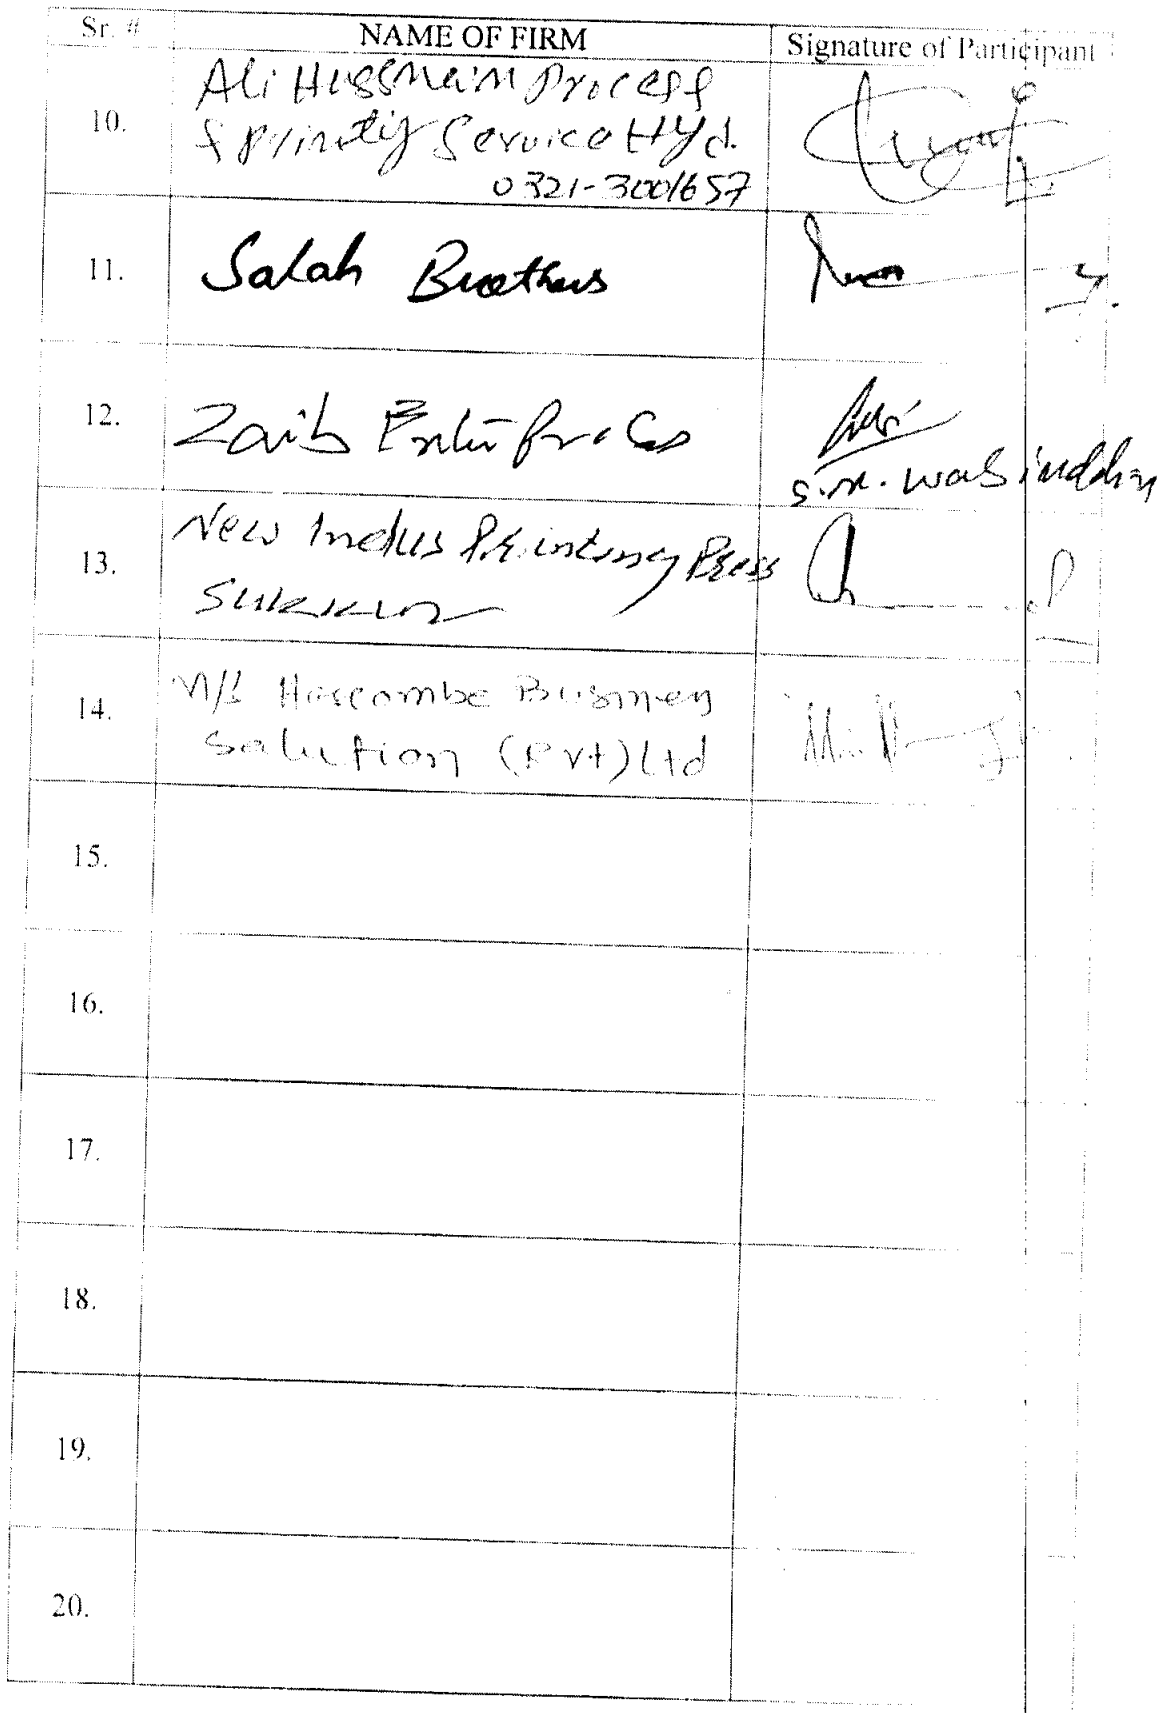 Sr. # NAME OF FIRM Signature of Participant
10. Ali Hussnain Process
& Printig Service Hyd.
0321-3001657
11. Salah Brothers
12. Zaib Enterprices
S.M.
13. New Indus Printing Press
Sukkur
14. M/s Hascombe Business
Solution (Pvt) Ltd
15.
16.
17.
18.
19.
20.